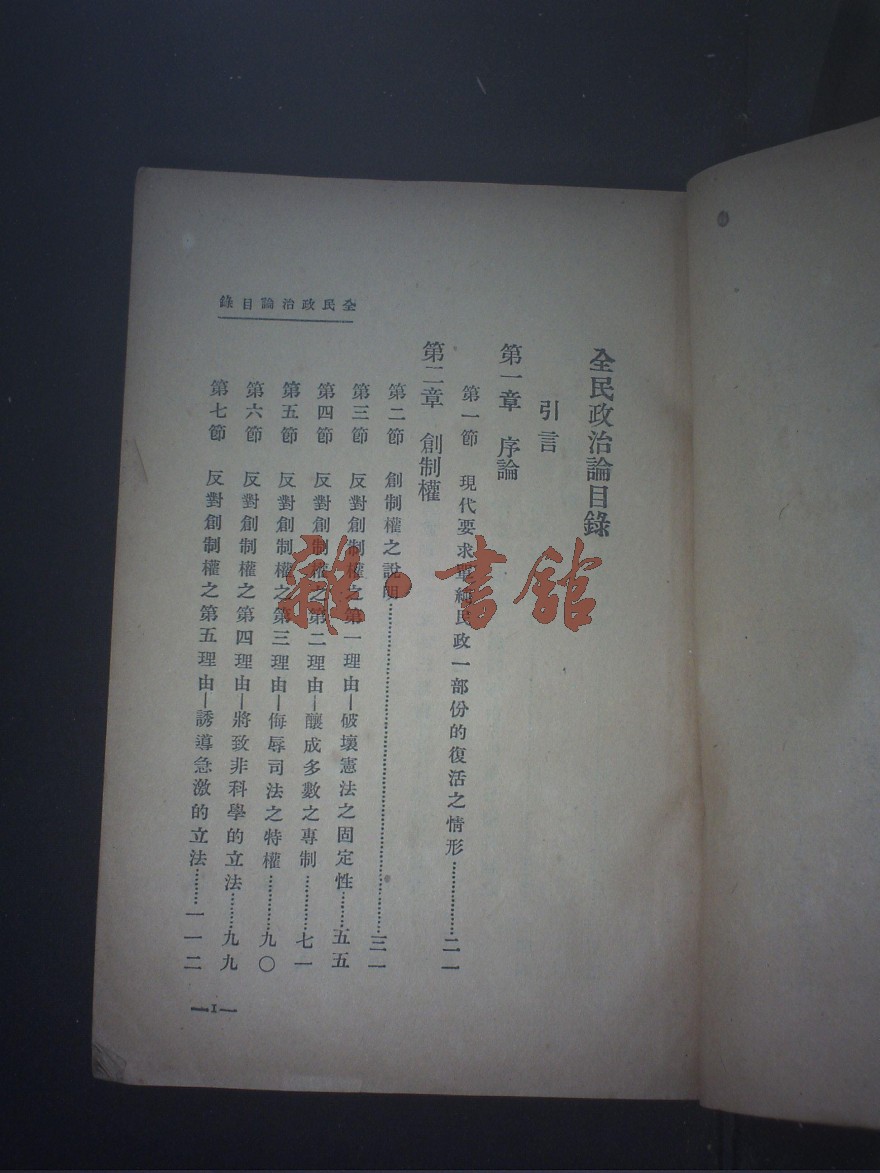 全民政治論目錄
引言
第一章 序論
第一節 現代要求單純民政一部份的復活之情形……………二一
第二章 創制權
第二節 創制權之說明……………………………………三一
第三節 反對創制權之第一理由—破壞憲法之固定性……五五
第四節 反對創制權之第二理由—釀成多數之專制………七一
第五節 反對創制權之第三理由—侮辱司法之特權………九〇
第六節 反對創制權之第四理由—將致非科學的立法……九九
第七節 反對創制權之第五理由—誘導急激的立法………一一二
全民政治論目錄
—I—
雜·書舘